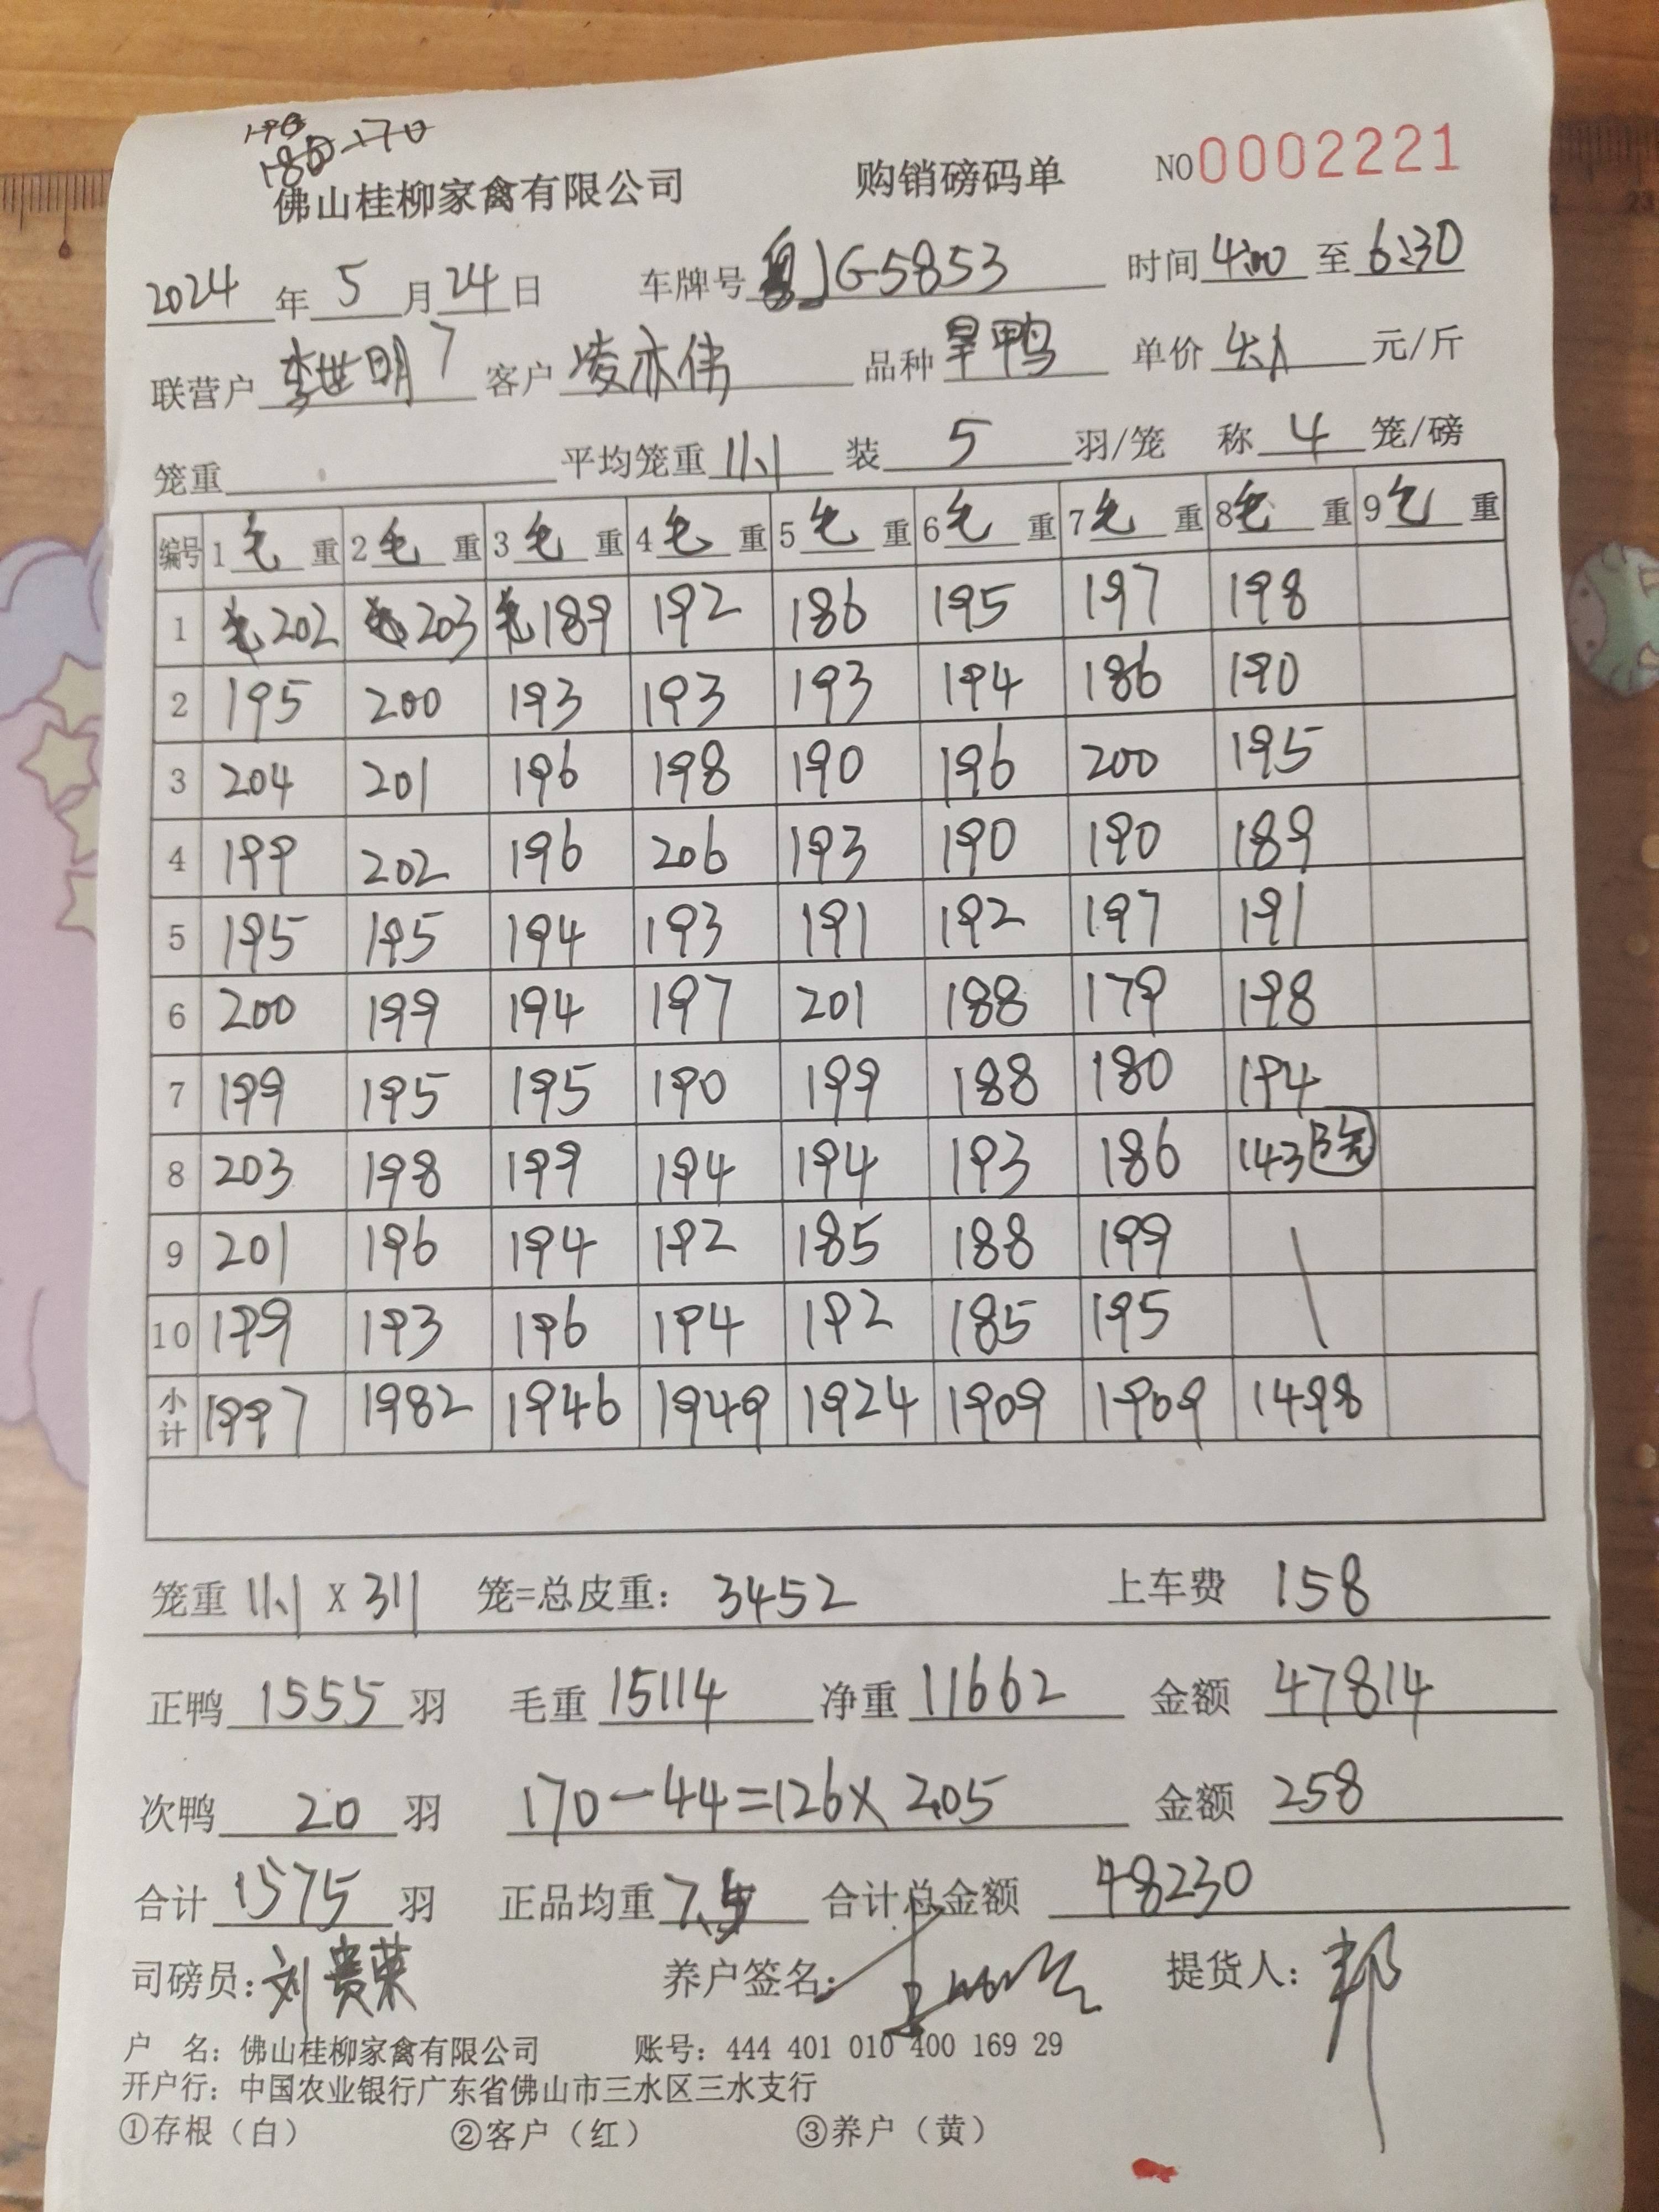 190
180 170
佛山桂柳家禽有限公司 购销磅码单 NO0002221
2024年5月24日 车牌号 粤JG5853 时间4:00至6:30
联营户 李世明7 客户 凌亦伟 品种 旱鸭 单价 4.1 元/斤
笼重 平均笼重 11.1 装 5 羽/笼 称 4 笼/磅
编号 1毛重 2毛重 3毛重 4毛重 5毛重 6毛重 7毛重 8毛重 9毛重
1 毛202 毛203 毛189 192 186 195 197 198
2 195 200 193 193 193 194 186 190
3 204 201 196 198 190 196 200 195
4 199 202 196 206 193 190 190 189
5 195 195 194 193 191 192 197 191
6 200 199 194 197 201 188 179 198
7 199 195 195 190 199 188 180 194
8 203 198 199 194 194 193 186 143 3笼
9 201 196 194 192 185 188 199
10 199 193 196 194 192 185 195
小计 1997 1982 1946 1949 1924 1909 1909 1498
笼重 11.1 X 311 笼=总皮重： 3452 上车费 158
正鸭 1555 羽 毛重 15114 净重 11662 金额 47814
次鸭 20 羽 170-44=126X 2.05 金额 258
合计 1575 羽 正品均重 7.5 合计总金额 48230
司磅员：刘贵荣 养户签名： 提货人：邦
户 名：佛山桂柳家禽有限公司 账号：444 401 010 400 169 29
开户行：中国农业银行广东省佛山市三水区三水支行
①存根（白） ②客户（红） ③养户（黄）